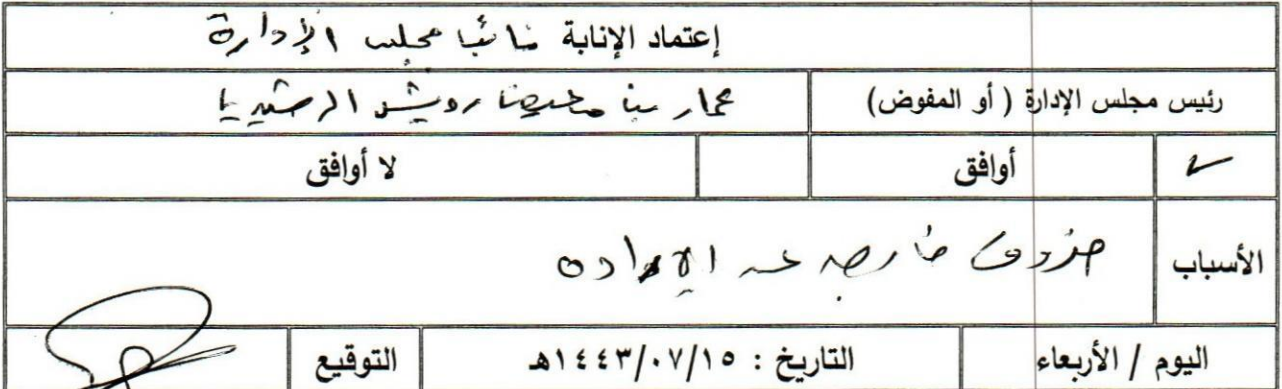 إعتماد الإنابة نائب مجلس الإدارة
رئيس مجلس الإدارة ( أو المفوض) عمار بن
✓ أوافق لا أوافق
الأسباب ظروف خارجه عن الإرادة
اليوم / الأربعاء التاريخ : ١٤٤٣/٠٧/١٥هـ التوقيع